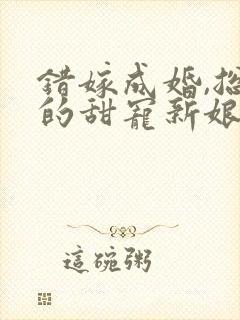 錯嫁成婚,总
的甜寵新娘
這碗粥